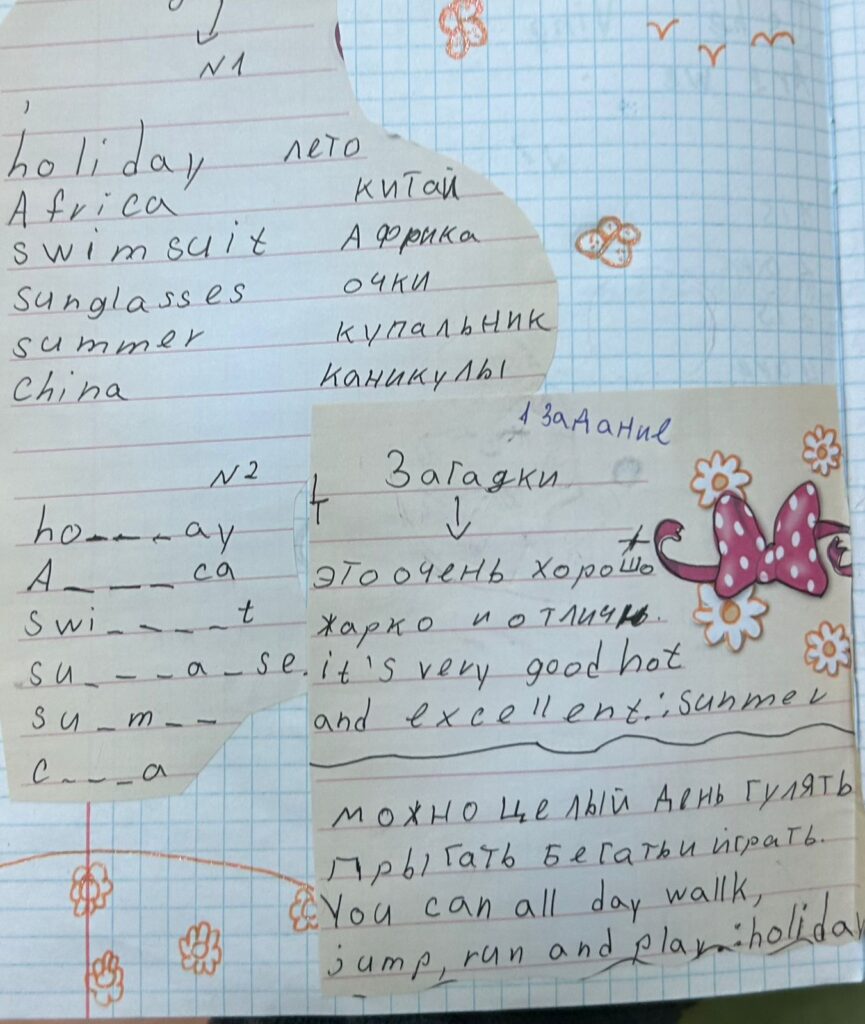 N1
holiday лето
Africa китай
swimsuit Африка
sunglasses очки
summer купальник
china каникулы
N2
ho _ _ _ ay
A _ _ _ _ ca
swi _ _ _ _ t
su _ _ _ a _ se.
su _ m _ _
c _ _ _ a
1 Задание
Загадки
это очень хорошо
жарко и отличн.
it's very good hot
and excellent.: sunmer
можно целый день гулять
прыгать бегать и играть.
You can all day wallk,
jump, run and play.: holiday